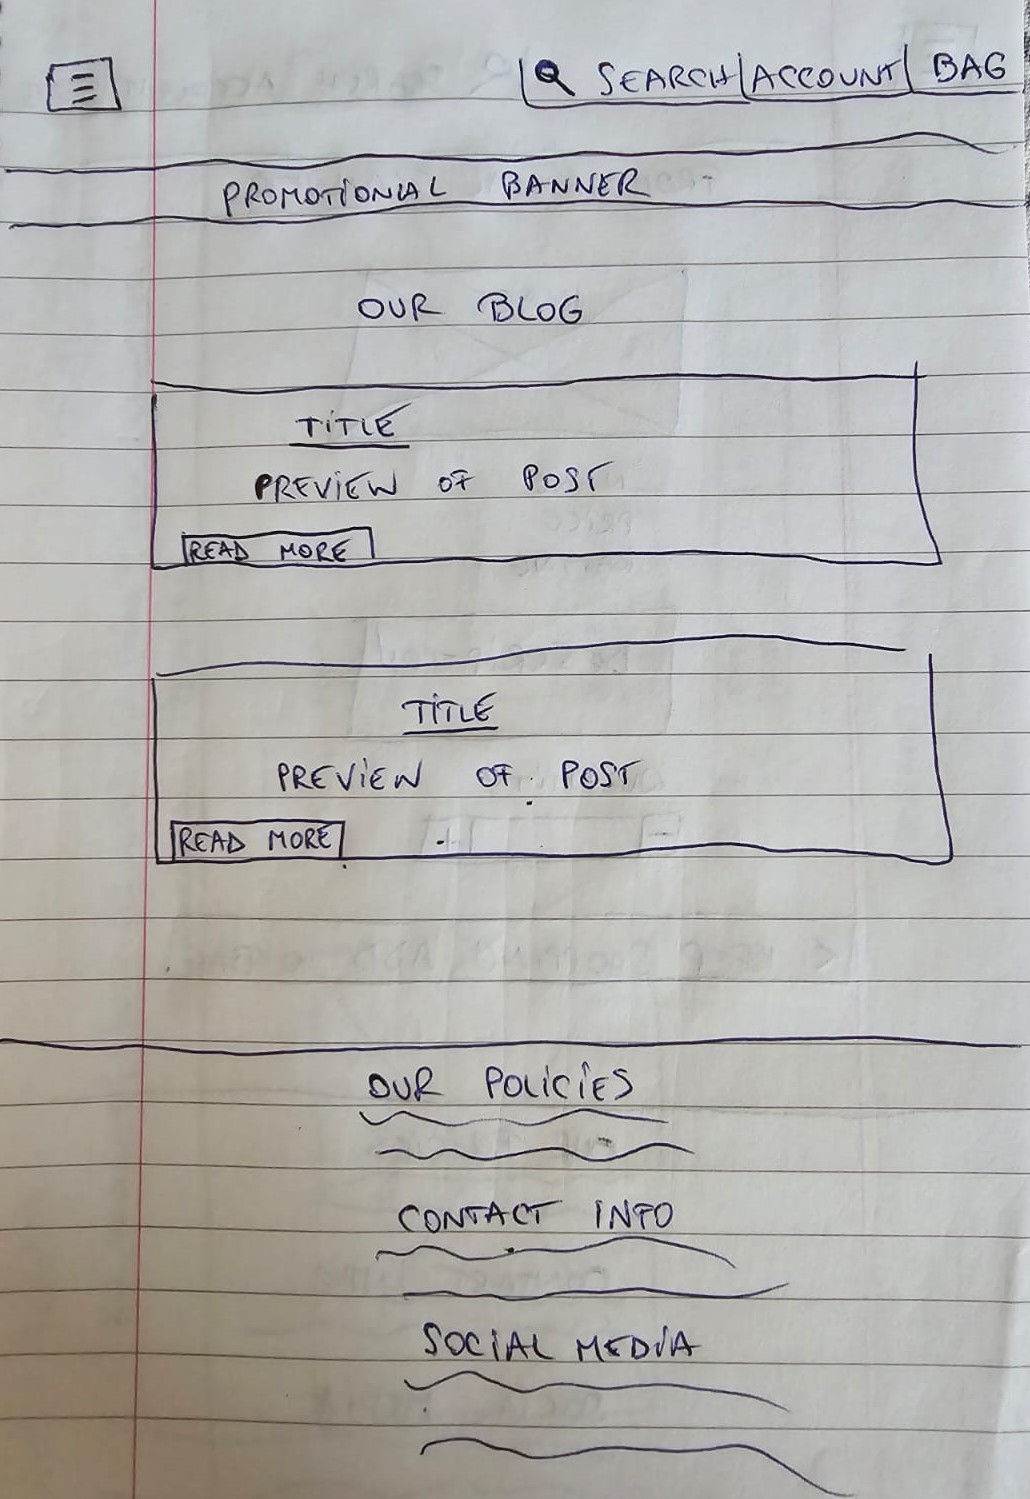 SEARCH ACCOUNT BAG
PROMOTIONAL BANNER
OUR BLOG
TITLE
PREVIEW OF POST
READ MORE
TITLE
PREVIEW OF POST
READ MORE
OUR POLICIES
CONTACT INFO
SOCIAL MEDIA